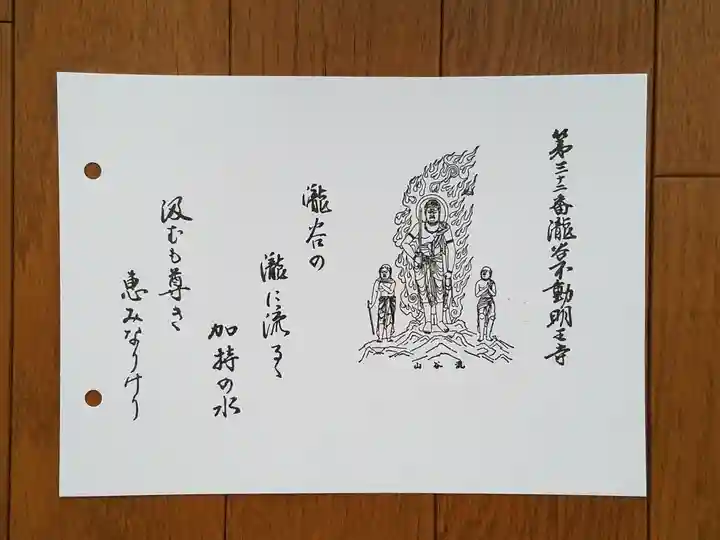 第三十二番瀧谷不動明王寺
山谷瀧
瀧谷の
瀧に流るゝ
加持の水
汲むも尊き
恵みなりけり